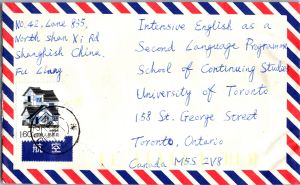 No. 42, Lane 835,
North Shan Xi Rd
Shanghish China
Fu Liang
160
航空
Intensive English as a
Second Language Programme
School of Continuing Studies
University of Toronto
158 St. George Street
Toronto, Ontario
Canada M5S 2V8